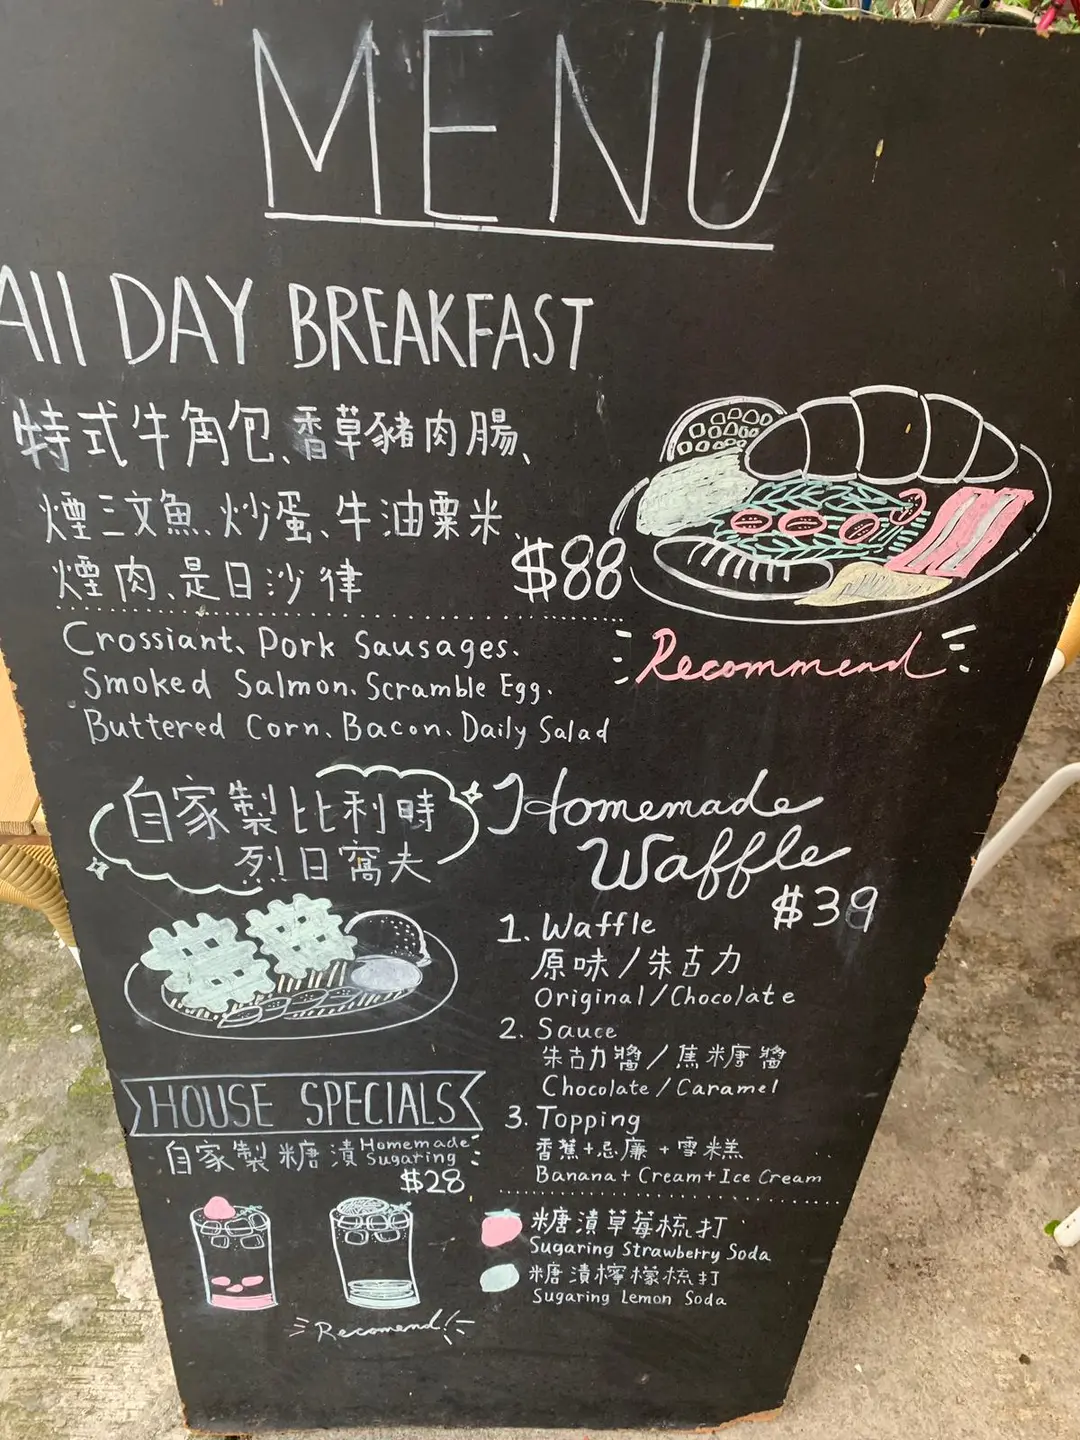 MENU
All DAY BREAKFAST
特式牛角包、香草豬肉腸、
煙三文魚、炒蛋、牛油粟米、
煙肉、是日沙律
$88
Crossiant、Pork Sausages.
Smoked Salmon. Scramble Egg.
Buttered Corn、Bacon、Daily Salad
Recommend
自家製比利時
烈日窩夫
Homemade
Waffle
$39
1. Waffle
原味/朱古力
Original/Chocolate
2. Sauce
朱古力醬/焦糖醬
Chocolate/Caramel
3. Topping
香蕉+忌廉+雪糕
Banana+Cream+Ice Cream
HOUSE SPECIALS
自家製糖漬 Homemade
Sugaring
$28
糖漬草莓梳打
Sugaring Strawberry Soda
糖漬檸檬梳打
Sugaring Lemon Soda
Recomend